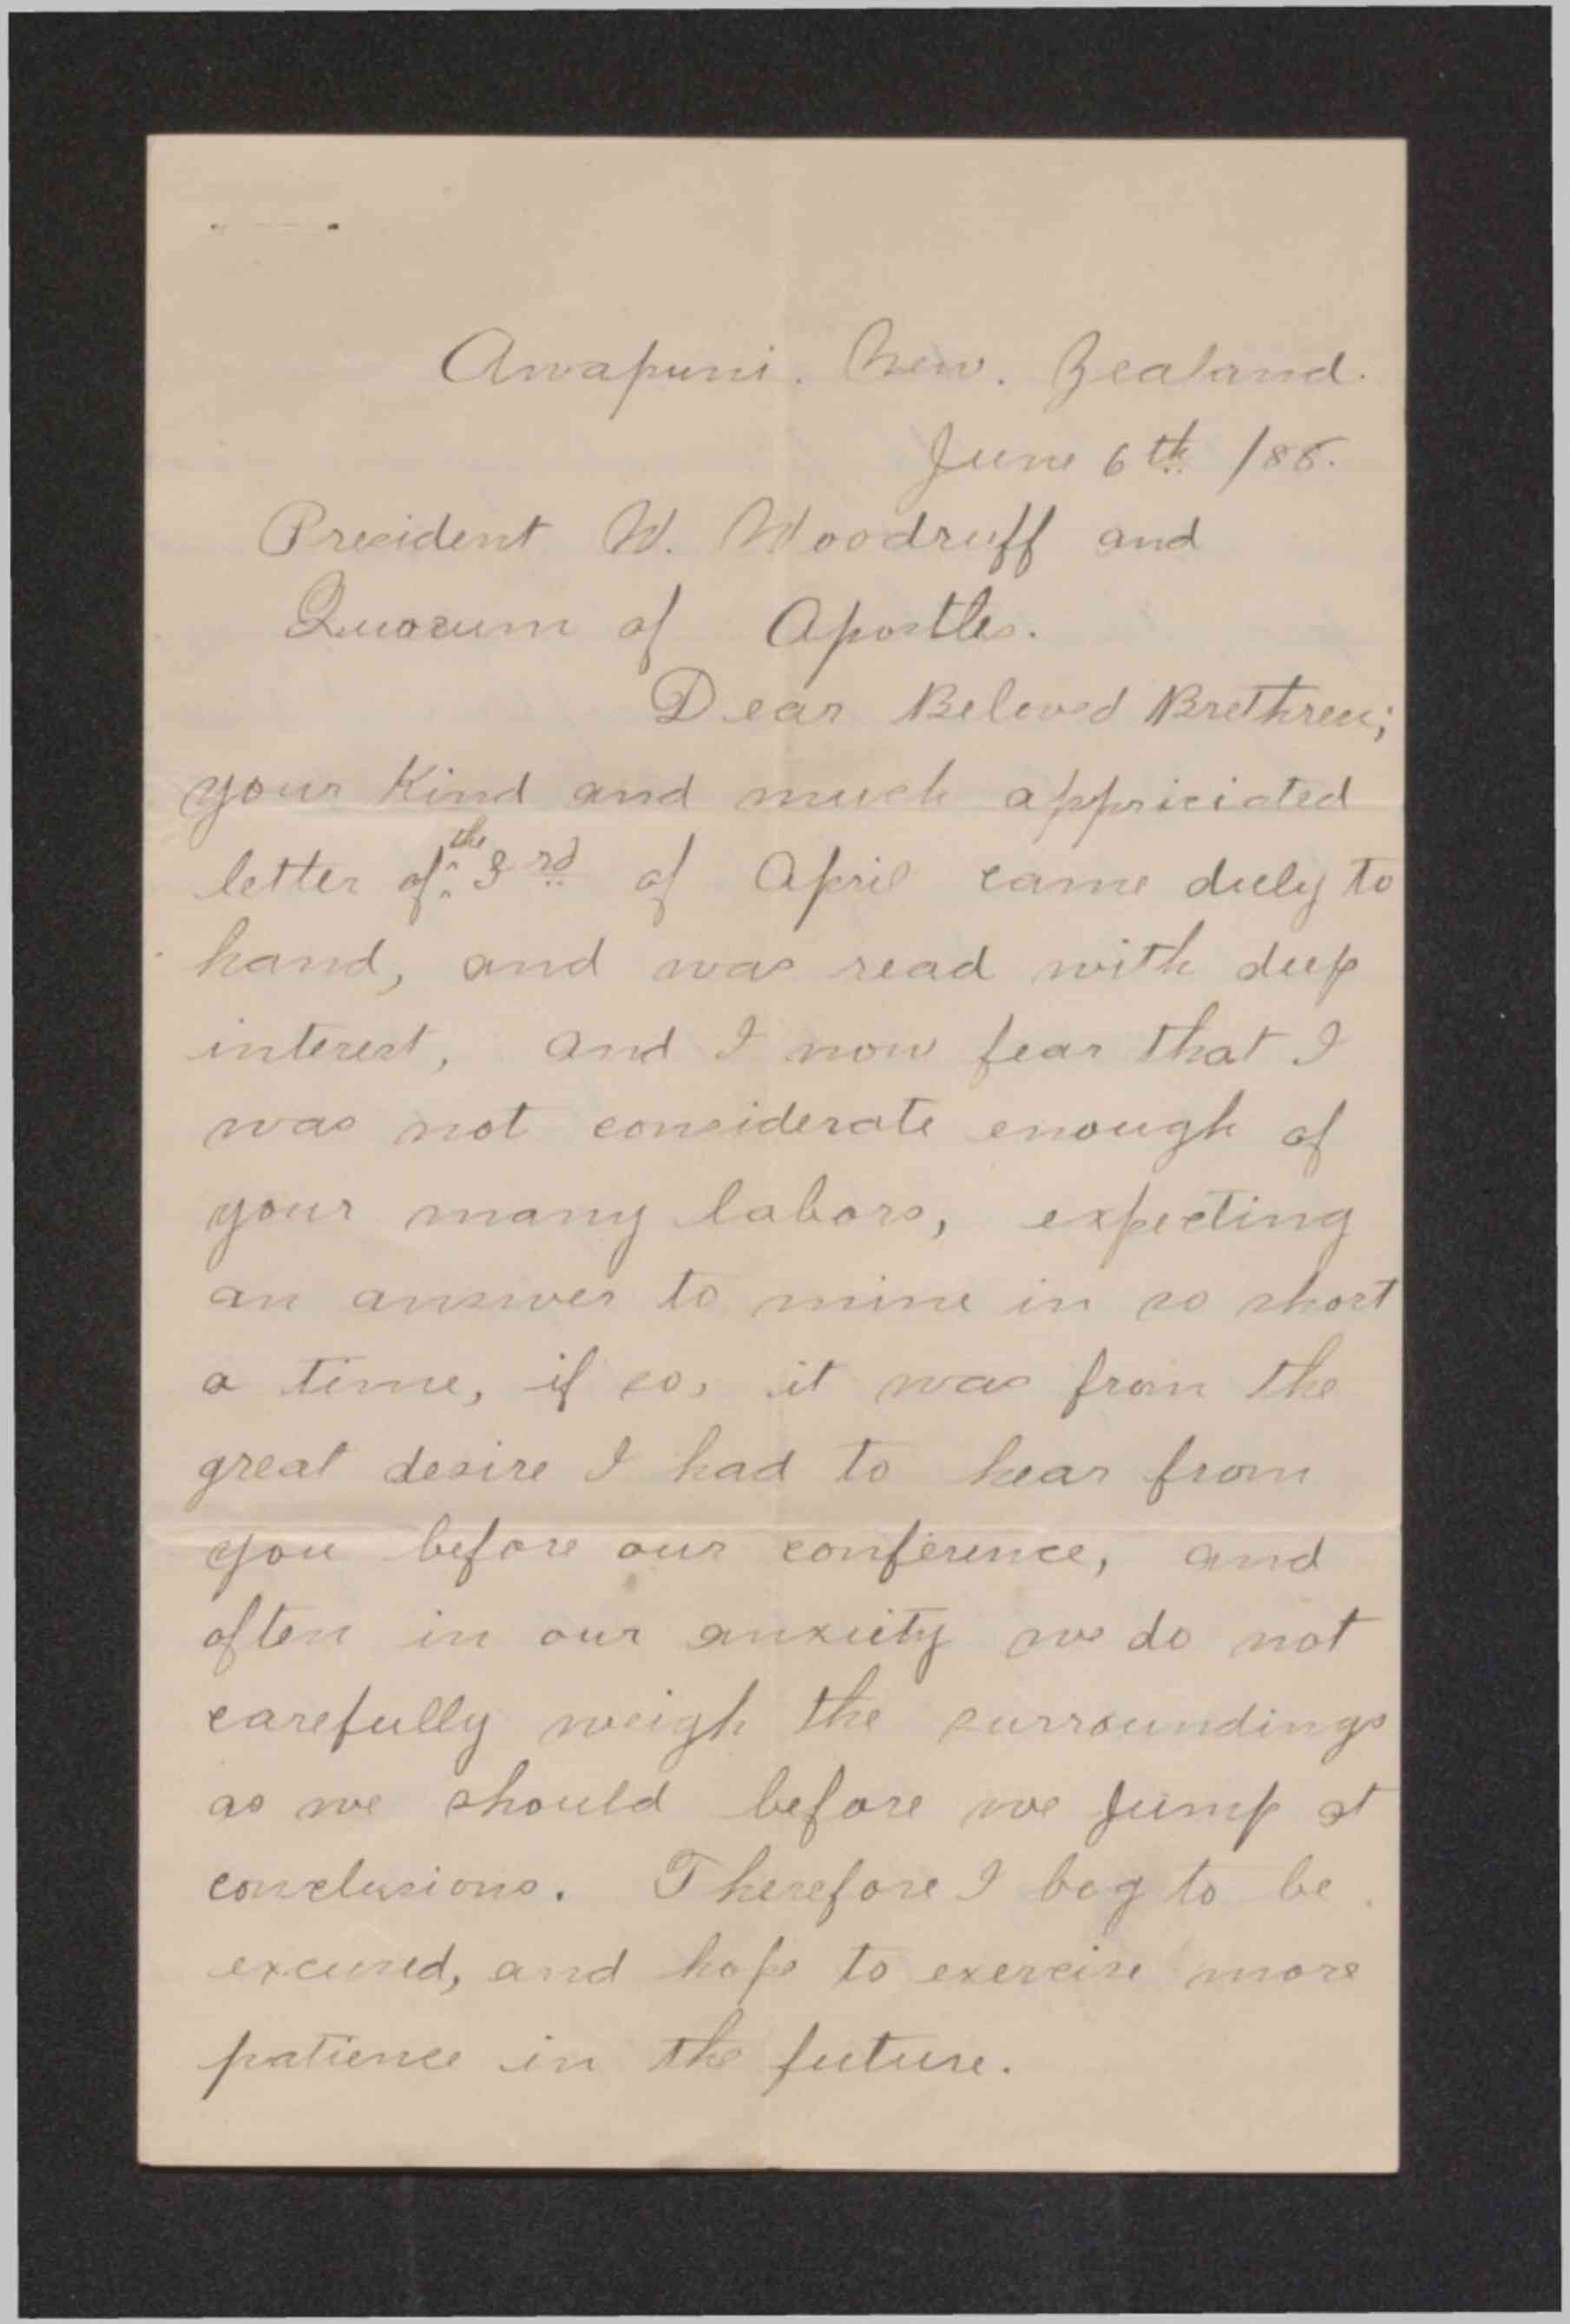 Awapuni. New. Zealand.
June 6th /88.
President W. Woodruff and
Quorum of Apostles.
Dear Beloved Brethren;
your Kind and much appriciated
letter of the 3rd of April came duly to
hand, and was read with deep
interest, and I now fear that I
was not considerate enough of
your many labors, expecting
an answer to mine in so short
a time, if so, it was from the
great desire I had to hear from
you before our conference, and
often in our anxiety we do not
carefully weigh the surroundings
as we should before we jump at
conclusions. Therefore I beg to be
excused, and hope to exercise more
patience in the future.